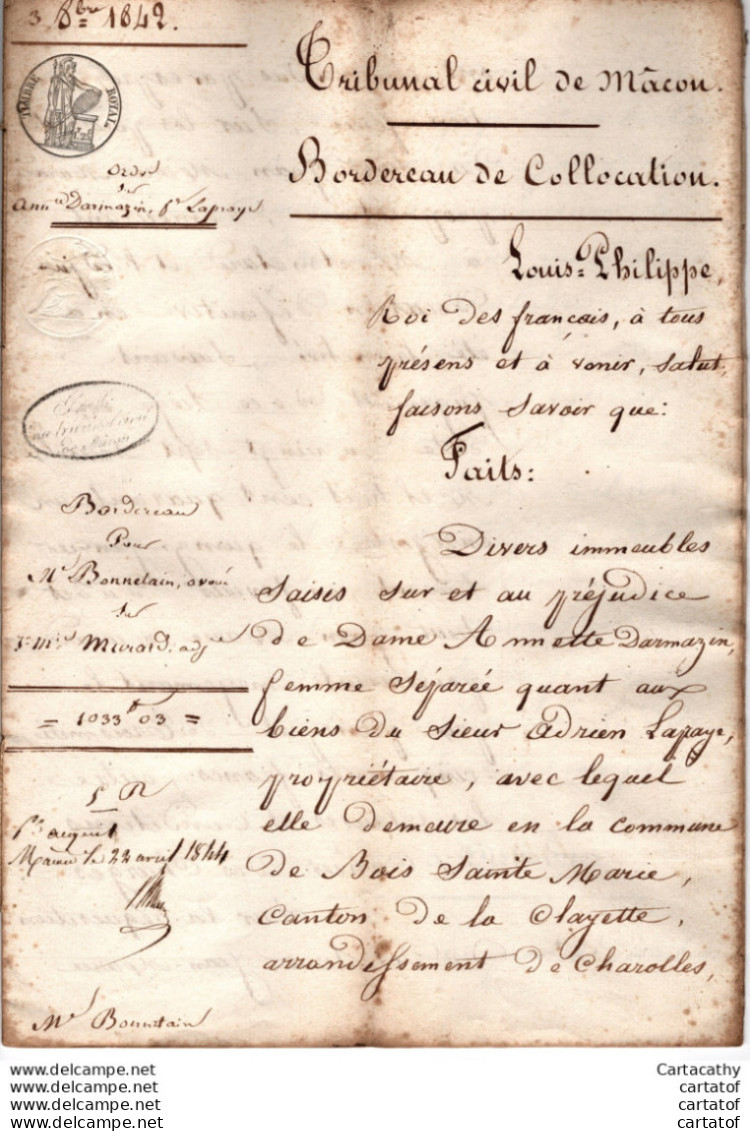 3 8bre 1842.
TIMBRE ROYAL
Ordre
sur
Annte Darmazin, fe Lapraye
Bordereau
Pour
Me Bonnetain, avoué
Murard, adjre
= 1033 f 03 =
Mâcon le 22 avril 1844
Me Bonnetain
Tribunal civil de Mâcon.
Bordereau de Collocation.
Louis=Philippe,
Roi des français, à tous
présens et à venir, salut,
faisons savoir que:
Faits:
Divers immeubles
saisis sur et au préjudice
de Dame Annette Darmazin,
femme séparée quant aux
biens du sieur Adrien Lapraye,
propriétaire, avec lequel
elle demeure en la commune
de Bois Sainte Marie,
canton de la Clayette,
arrondissement de Charolles,
https://www.delcampe.net
https://www.delcampe.net
https://www.delcampe.net
https://www.delcampe.net
Cartacathy
cartatof
cartatof
cartatof